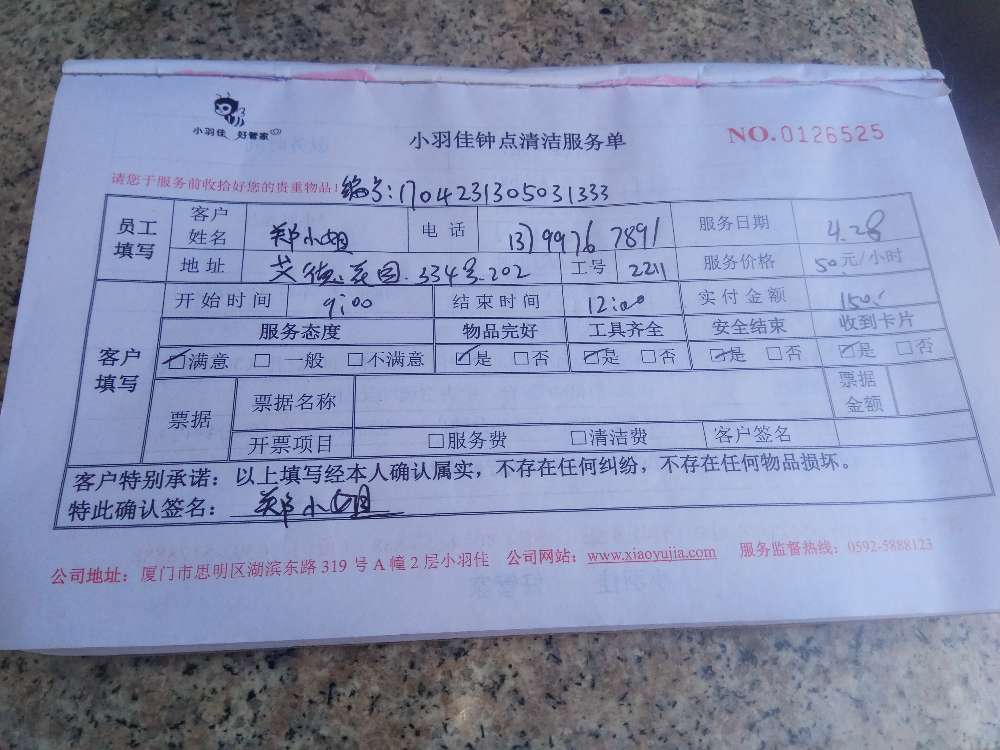 小羽佳 好管家
小羽佳钟点清洁服务单
NO.0126525
请您于服务前收拾好您的贵重物品!
编号:1704231305031333
员工填写 客户姓名 郑小姐 电话 13799767891 服务日期 4.28
地址 艾德花园.334号.202 工号 2211 服务价格 50元/小时
客户填写 开始时间 9:00 结束时间 12:00 实付金额 150.-
服务态度 物品完好 工具齐全 安全结束 收到卡片
☑满意 □一般 □不满意 ☑是 □否 ☑是 □否 ☑是 □否 ☑是 □否
票据 票据名称 票据金额
开票项目 □服务费 □清洁费 客户签名
客户特别承诺:以上填写经本人确认属实,不存在任何纠纷,不存在任何物品损坏。
特此确认签名:郑小姐
公司地址:厦门市思明区湖滨东路 319 号 A 幢 2 层小羽佳 公司网站:www.xiaoyujia.com 服务监督热线:0592-5888123